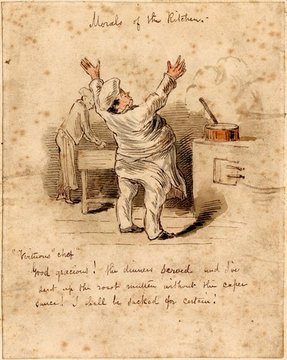 Morals of the Kitchen.
"Virtuous" chef
Good gracious! the dinners served and I've
sent up the roast mutton without the caper
sauce! I shall be sacked for certain!